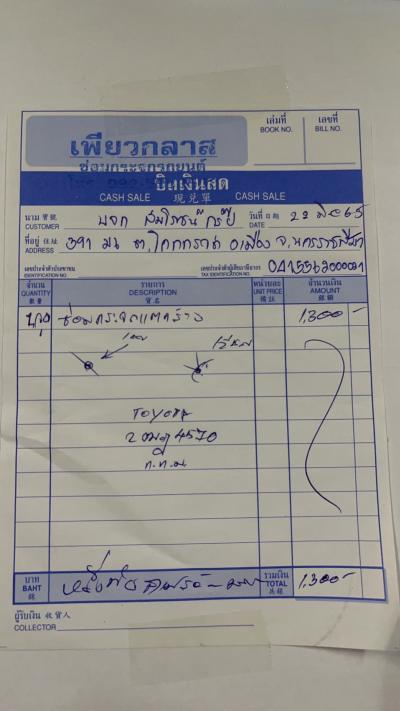 เล่มที่ เลขที่
BOOK NO. BILL NO.
เพียวกลาส
ซ่อมกระจกรถยนต์
บิลเงินสด
CASH SALE 現兑單 CASH SALE
นาม 寶號 บจก วันที่ 日期 22 มีค 65
CUSTOMER DATE
ที่อยู่ 住址 391 ม.4 ต. อ.เมือง จ.นครราชสีมา
ADDRESS
เลขประจำตัวประชาชน เลขประจำตัวผู้เสียภาษีอากร
IDENTIFICATION NO. TAX IDENTIFICATION NO.
จำนวน รายการ หน่วยละ จำนวนเงิน
QUANTITY DESCRIPTION UNIT PRICE AMOUNT
數量 貨名 價銀 銀額
ซ่อมกระจกแตกร้าว 1,300-
Toyota
4570
ก.ท.ม
บาท รวมเงิน
BAHT หนึ่งพันสามร้อย TOTAL 1,300-
銖 共銀
ผู้รับเงิน 收貨人
COLLECTOR